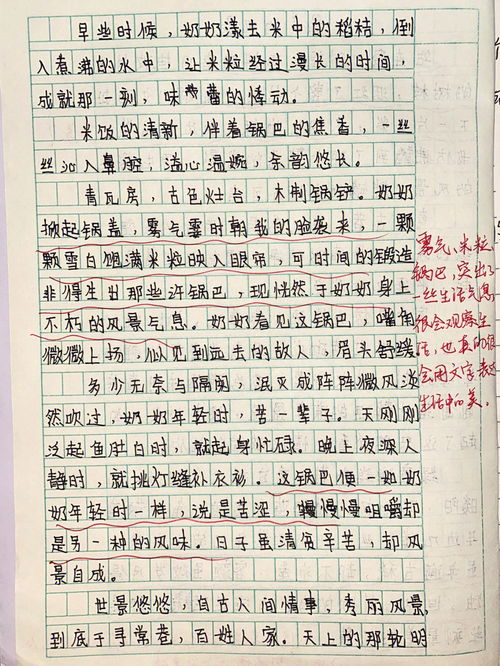 早些时候，奶奶漾去米中的稻秸，倒
入煮沸的水中，让米粒经过漫长的时间，
成就那一刻，味蕾的悸动。
米饭的清新，伴着锅巴的焦香，一丝
丝沁入鼻腔，溢心温婉，余韵悠长。
青瓦房，古色灶台，木制锅铲。奶奶
掀起锅盖，雾气霎时朝我的脸袭来，一颗
颗雪白饱满米粒映入眼帘，可时间的锻造
非得生出那些许锅巴，现恍然于奶奶身上
不朽的风景气息。奶奶看见这锅巴，嘴角
微微上扬，似见到远去的故人，眉头舒缓
多少无奈与隔阂，泯灭成阵阵微风淡
然吹过，奶奶年轻时，苦一辈子。天刚刚
泛起鱼肚白时，就起身忙碌。晚上夜深人
静时，就挑灯缝补衣衫。这锅巴便一如奶
奶年轻时一样，说是苦涩，慢慢咀嚼却
是另一种的风味。日子虽清贫辛苦，却风
景自成。
世景悠悠，自古人间情事，秀丽风景，
到底于寻常巷，百姓人家。天上的那轮明
雾气、米粒、
锅巴，突出了
一些生活气息
很会观察生
活，也真的很
会用文字表达
生活中的美。